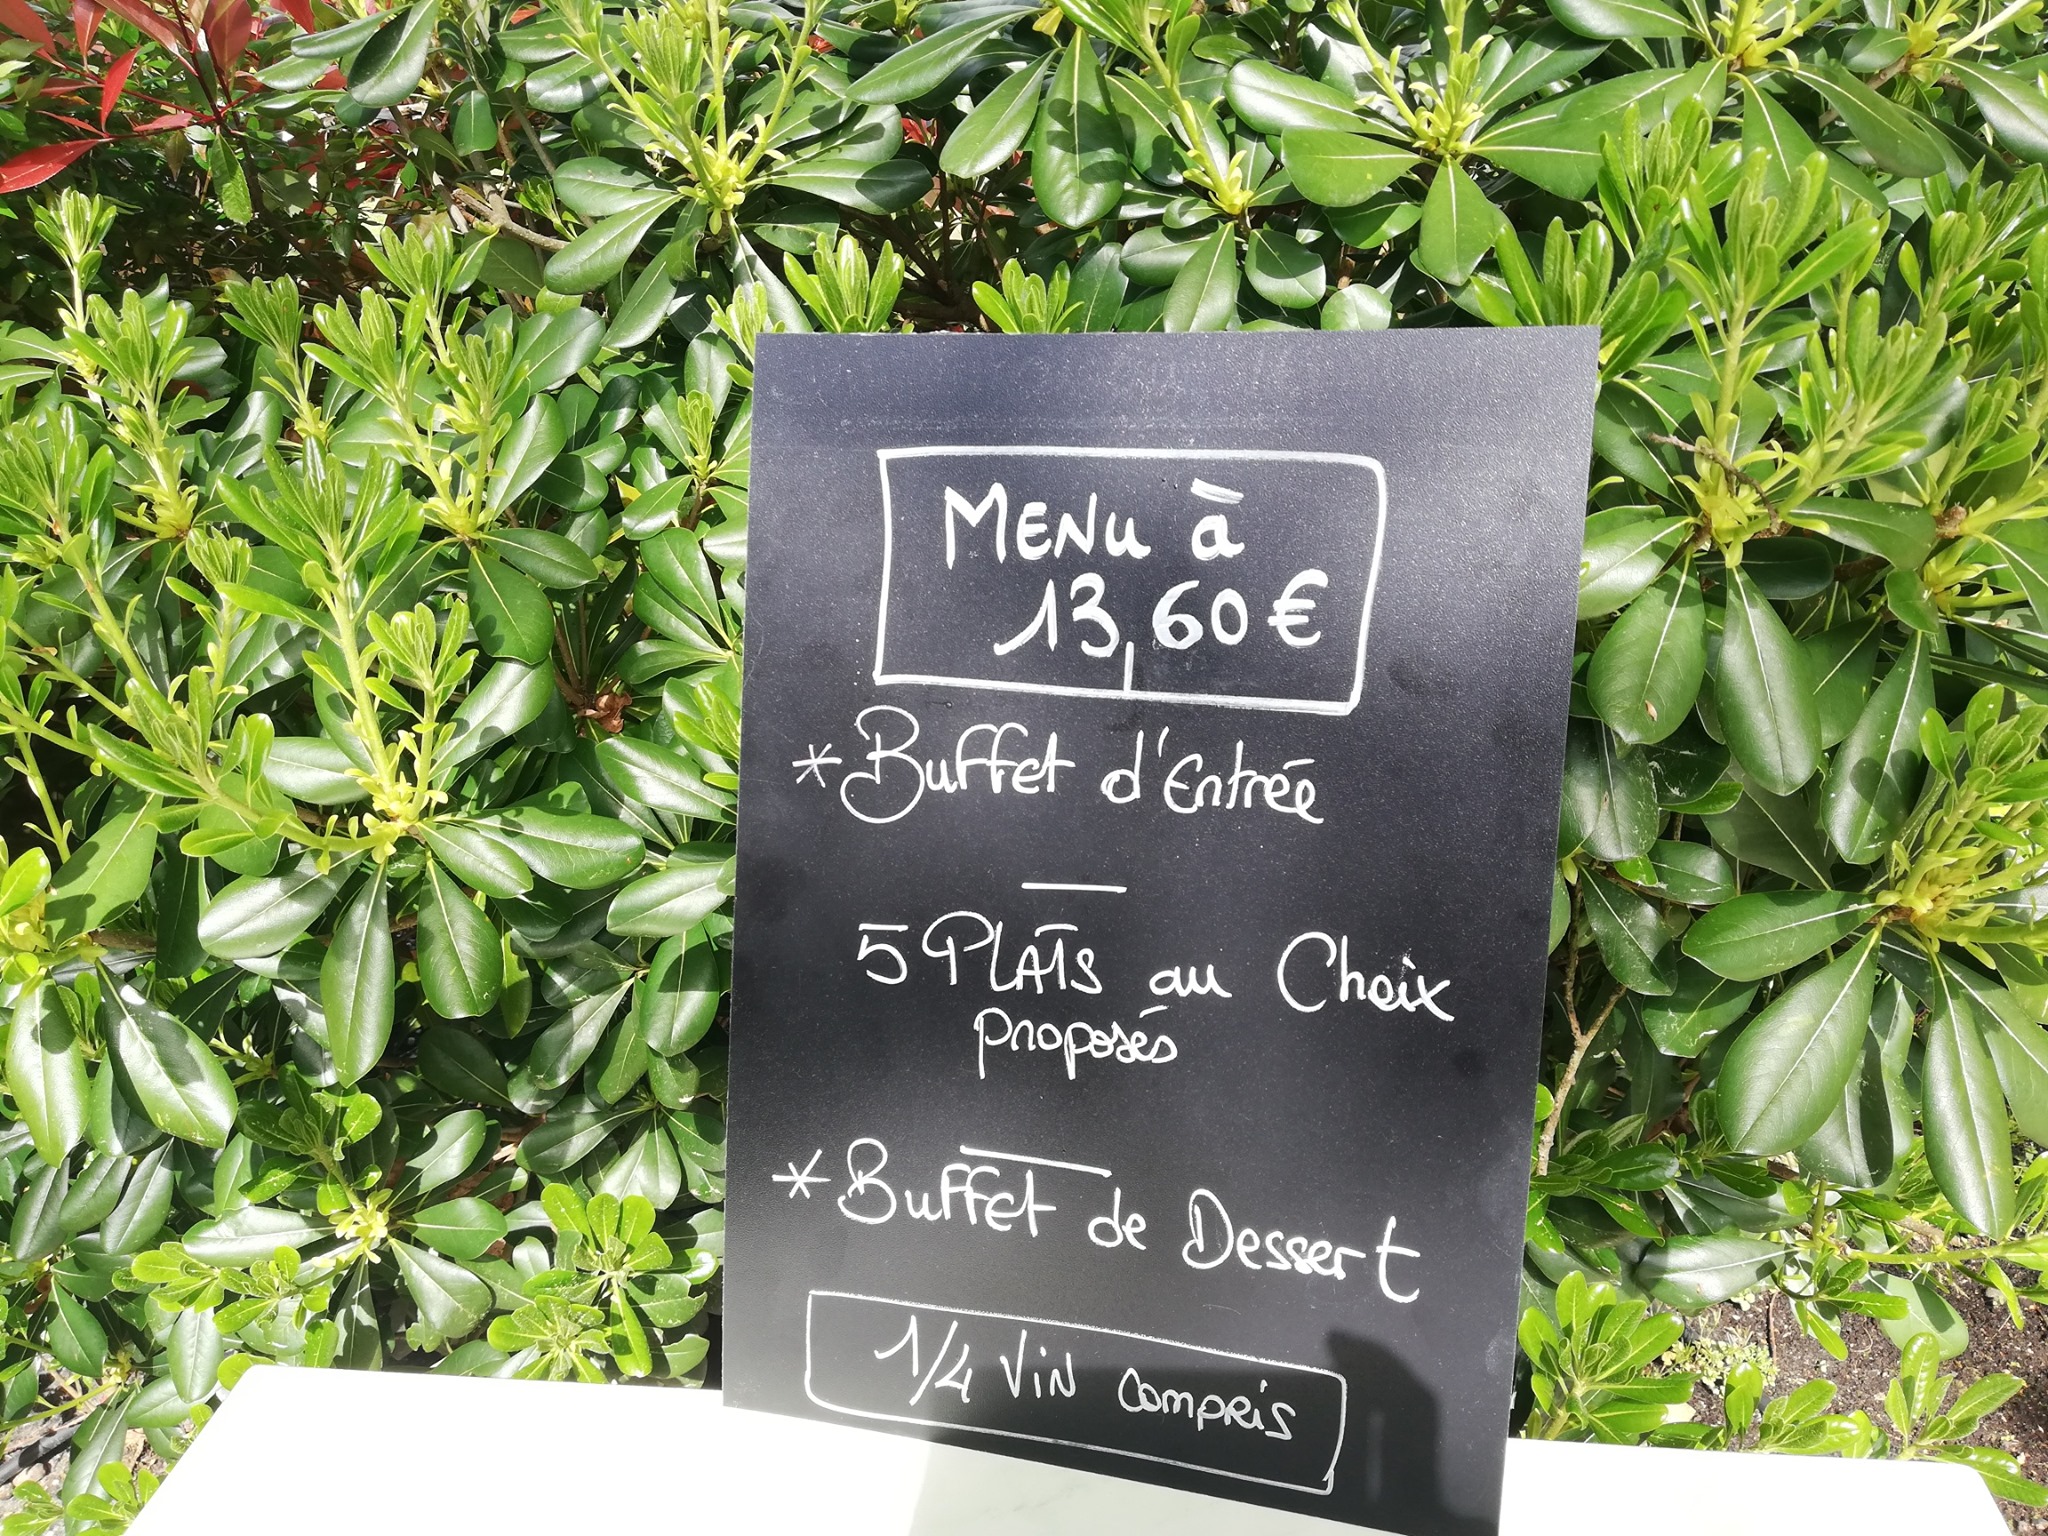 MENU à
13,60€
*Buffet d'Entrée
5 PLATS au Choix
proposés
*Buffet de Dessert
1/4 ViN compris